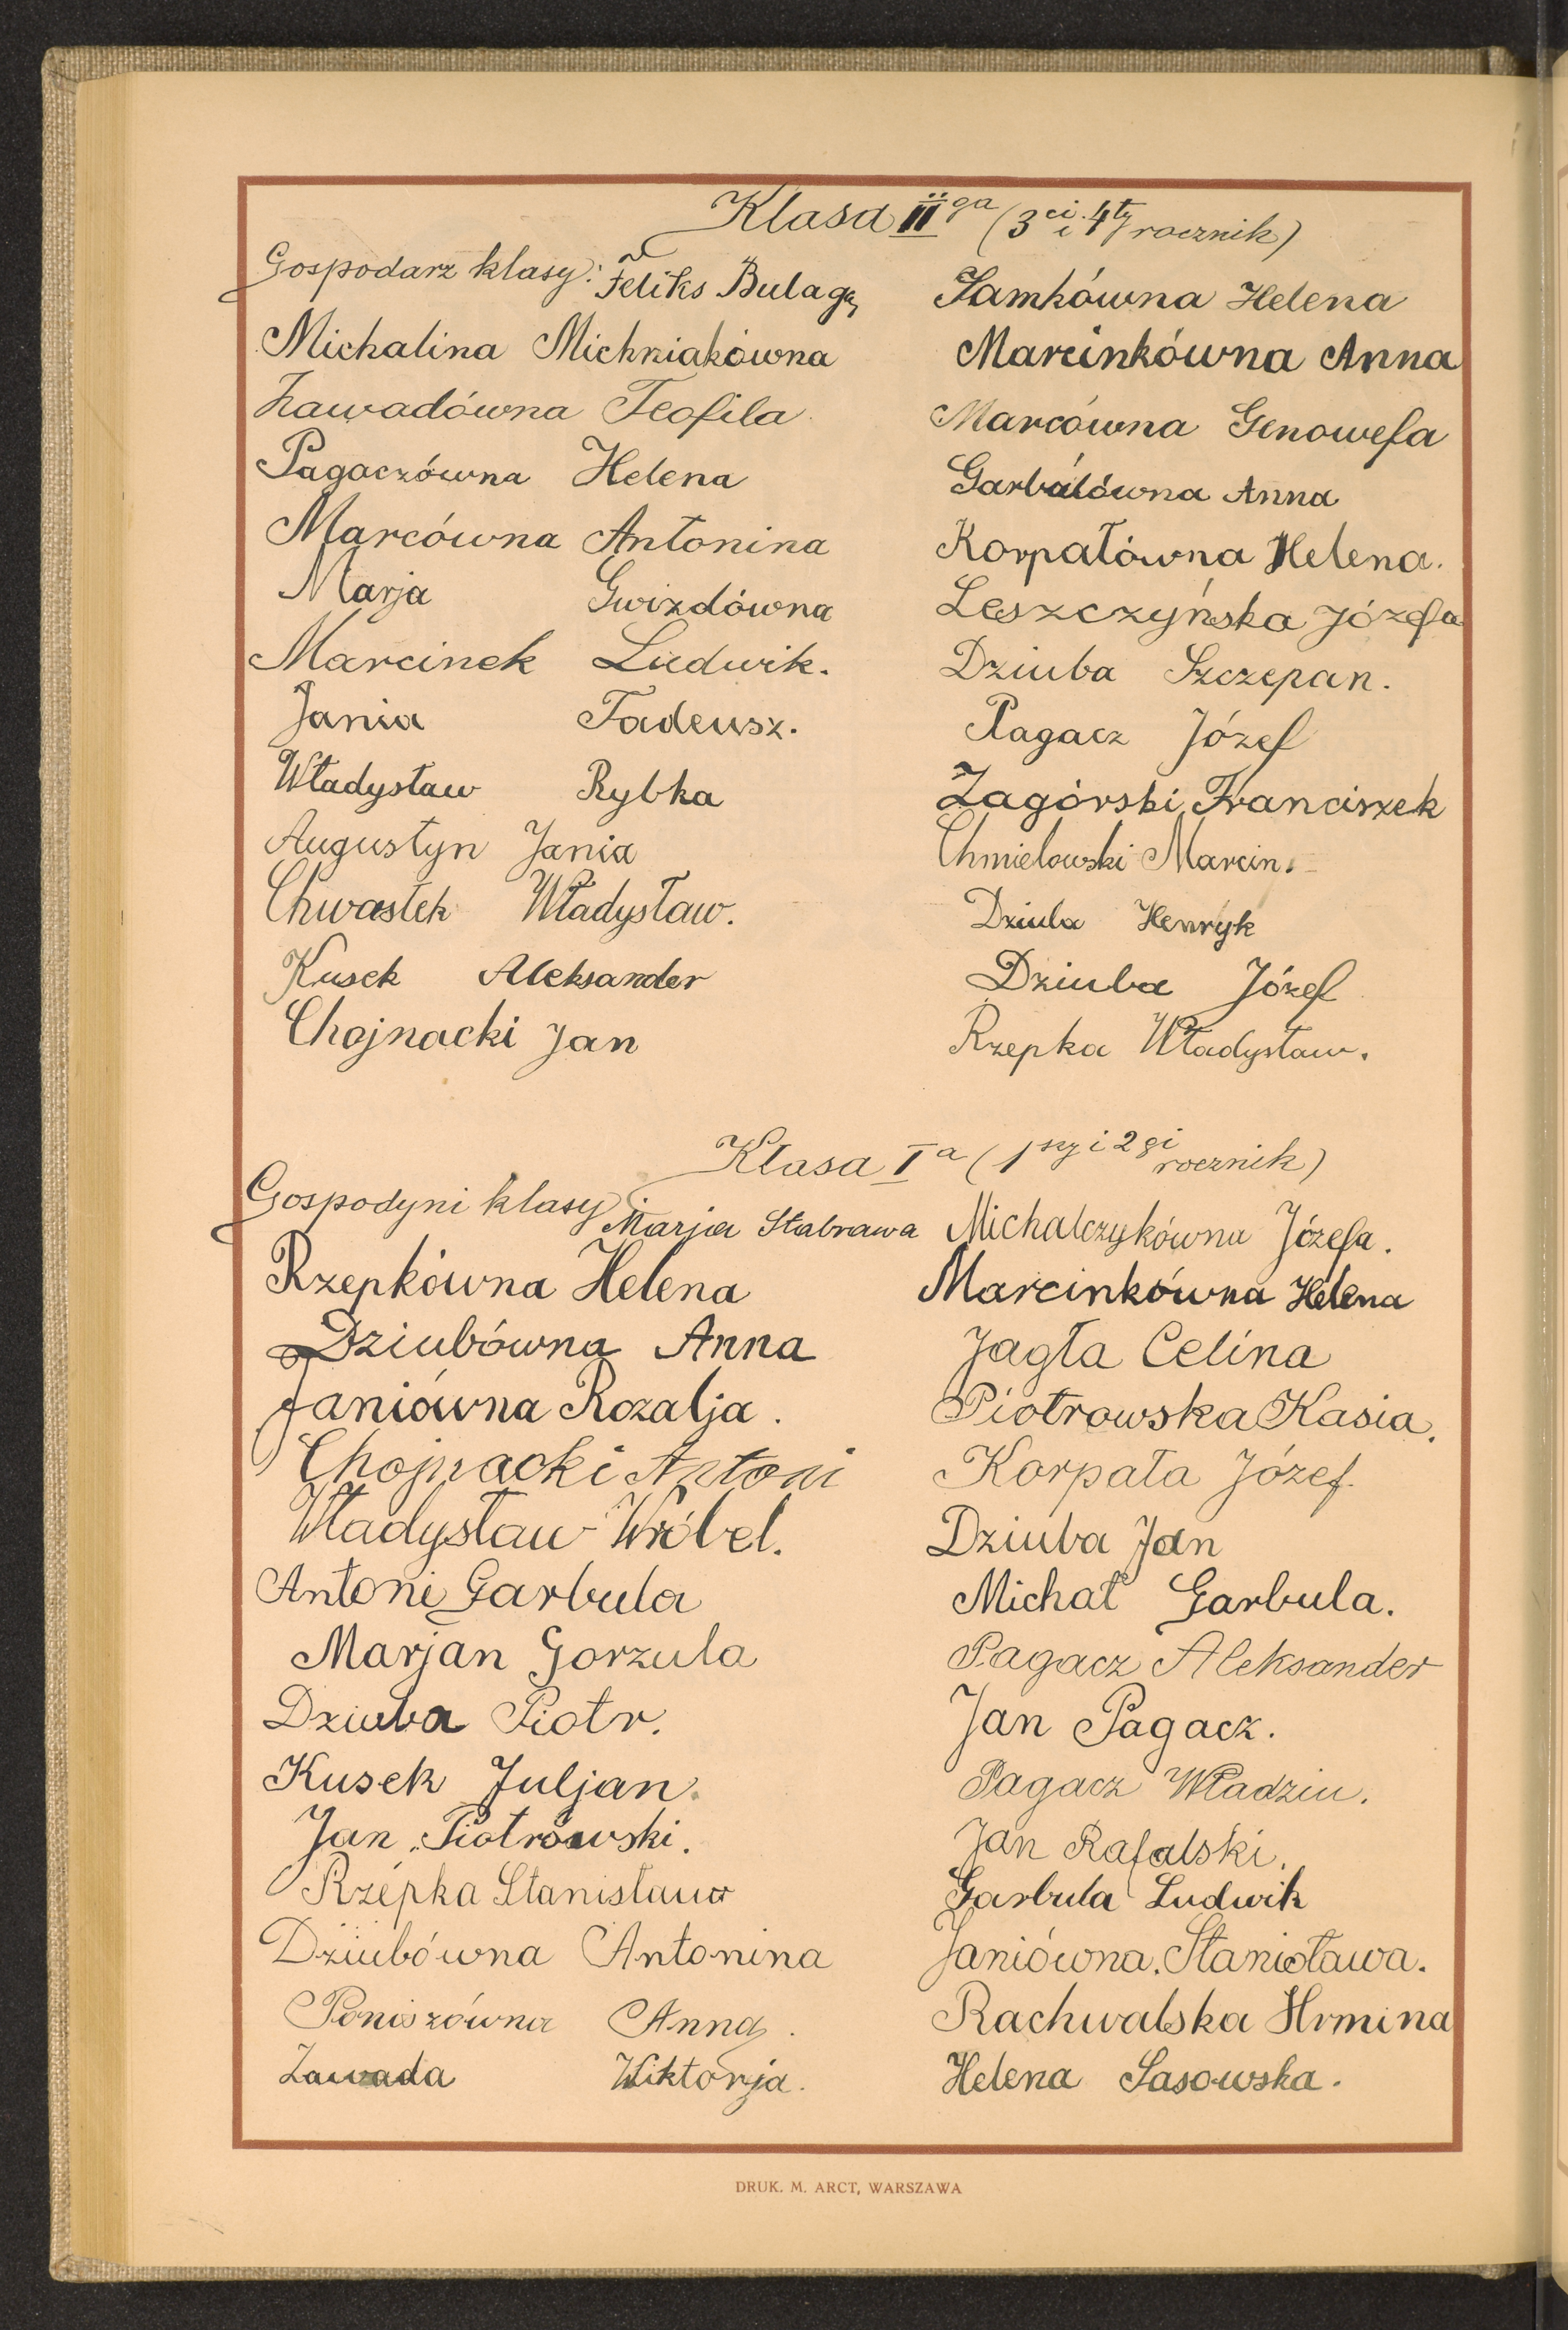 Klasa IIga (3ci i 4ty rocznik)
Gospodarz klasy: Feliks Bulaga
Michalina Michniakówna
Zawadówna Teofila
Pagaczówna Helena
Marcówna Antonina
Marja Gwizdówna
Marcinek Ludwik.
Jania Tadeusz.
Władysław Rybka
Augustyn Jania
Chwastek Władysław.
Kusek Aleksander
Chojnacki Jan
Samkówna Helena
Marcinkówna Anna
Marcówna Genowefa
Garbulówna Anna
Korpałówna Helena.
Leszczyńska Józefa
Dziuba Szczepan.
Pagacz Józef
Zagórski Franciszek
Chmielowski Marcin.
Dziuba Henryk
Dziuba Józef
Rzepka Władysław.
Klasa Ia (1szy i 2gi rocznik)
Gospodyni klasy Marja Stabrawa
Rzepkówna Helena
Dziubówna Anna
Janiówna Rozalja.
Chojnacki Antoni
Władysław Wróbel.
Antoni Garbula
Marjan Gorzula
Dziuba Piotr.
Kusek Juljan.
Jan Piotrowski.
Rzepka Stanisław
Dziubówna Antonina
Poniszówna Anna.
Zawada Wiktorja.
Michalczykówna Józefa.
Marcinkówna Helena
Jagła Celina
Piotrowska Kasia.
Korpała Józef.
Dziuba Jan
Michał Garbula.
Pagacz Aleksander
Jan Pagacz.
Pagacz Władziu.
Jan Rafalski.
Garbula Ludwik
Janiówna Stanisława.
Rachwalska Hrmina
Helena Sasowska.
DRUK. M. ARCT, WARSZAWA